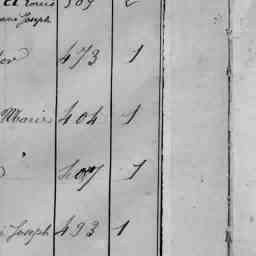 Louis 309
Joseph
473 1
Marie 404 1
407 1
Joseph 493 1